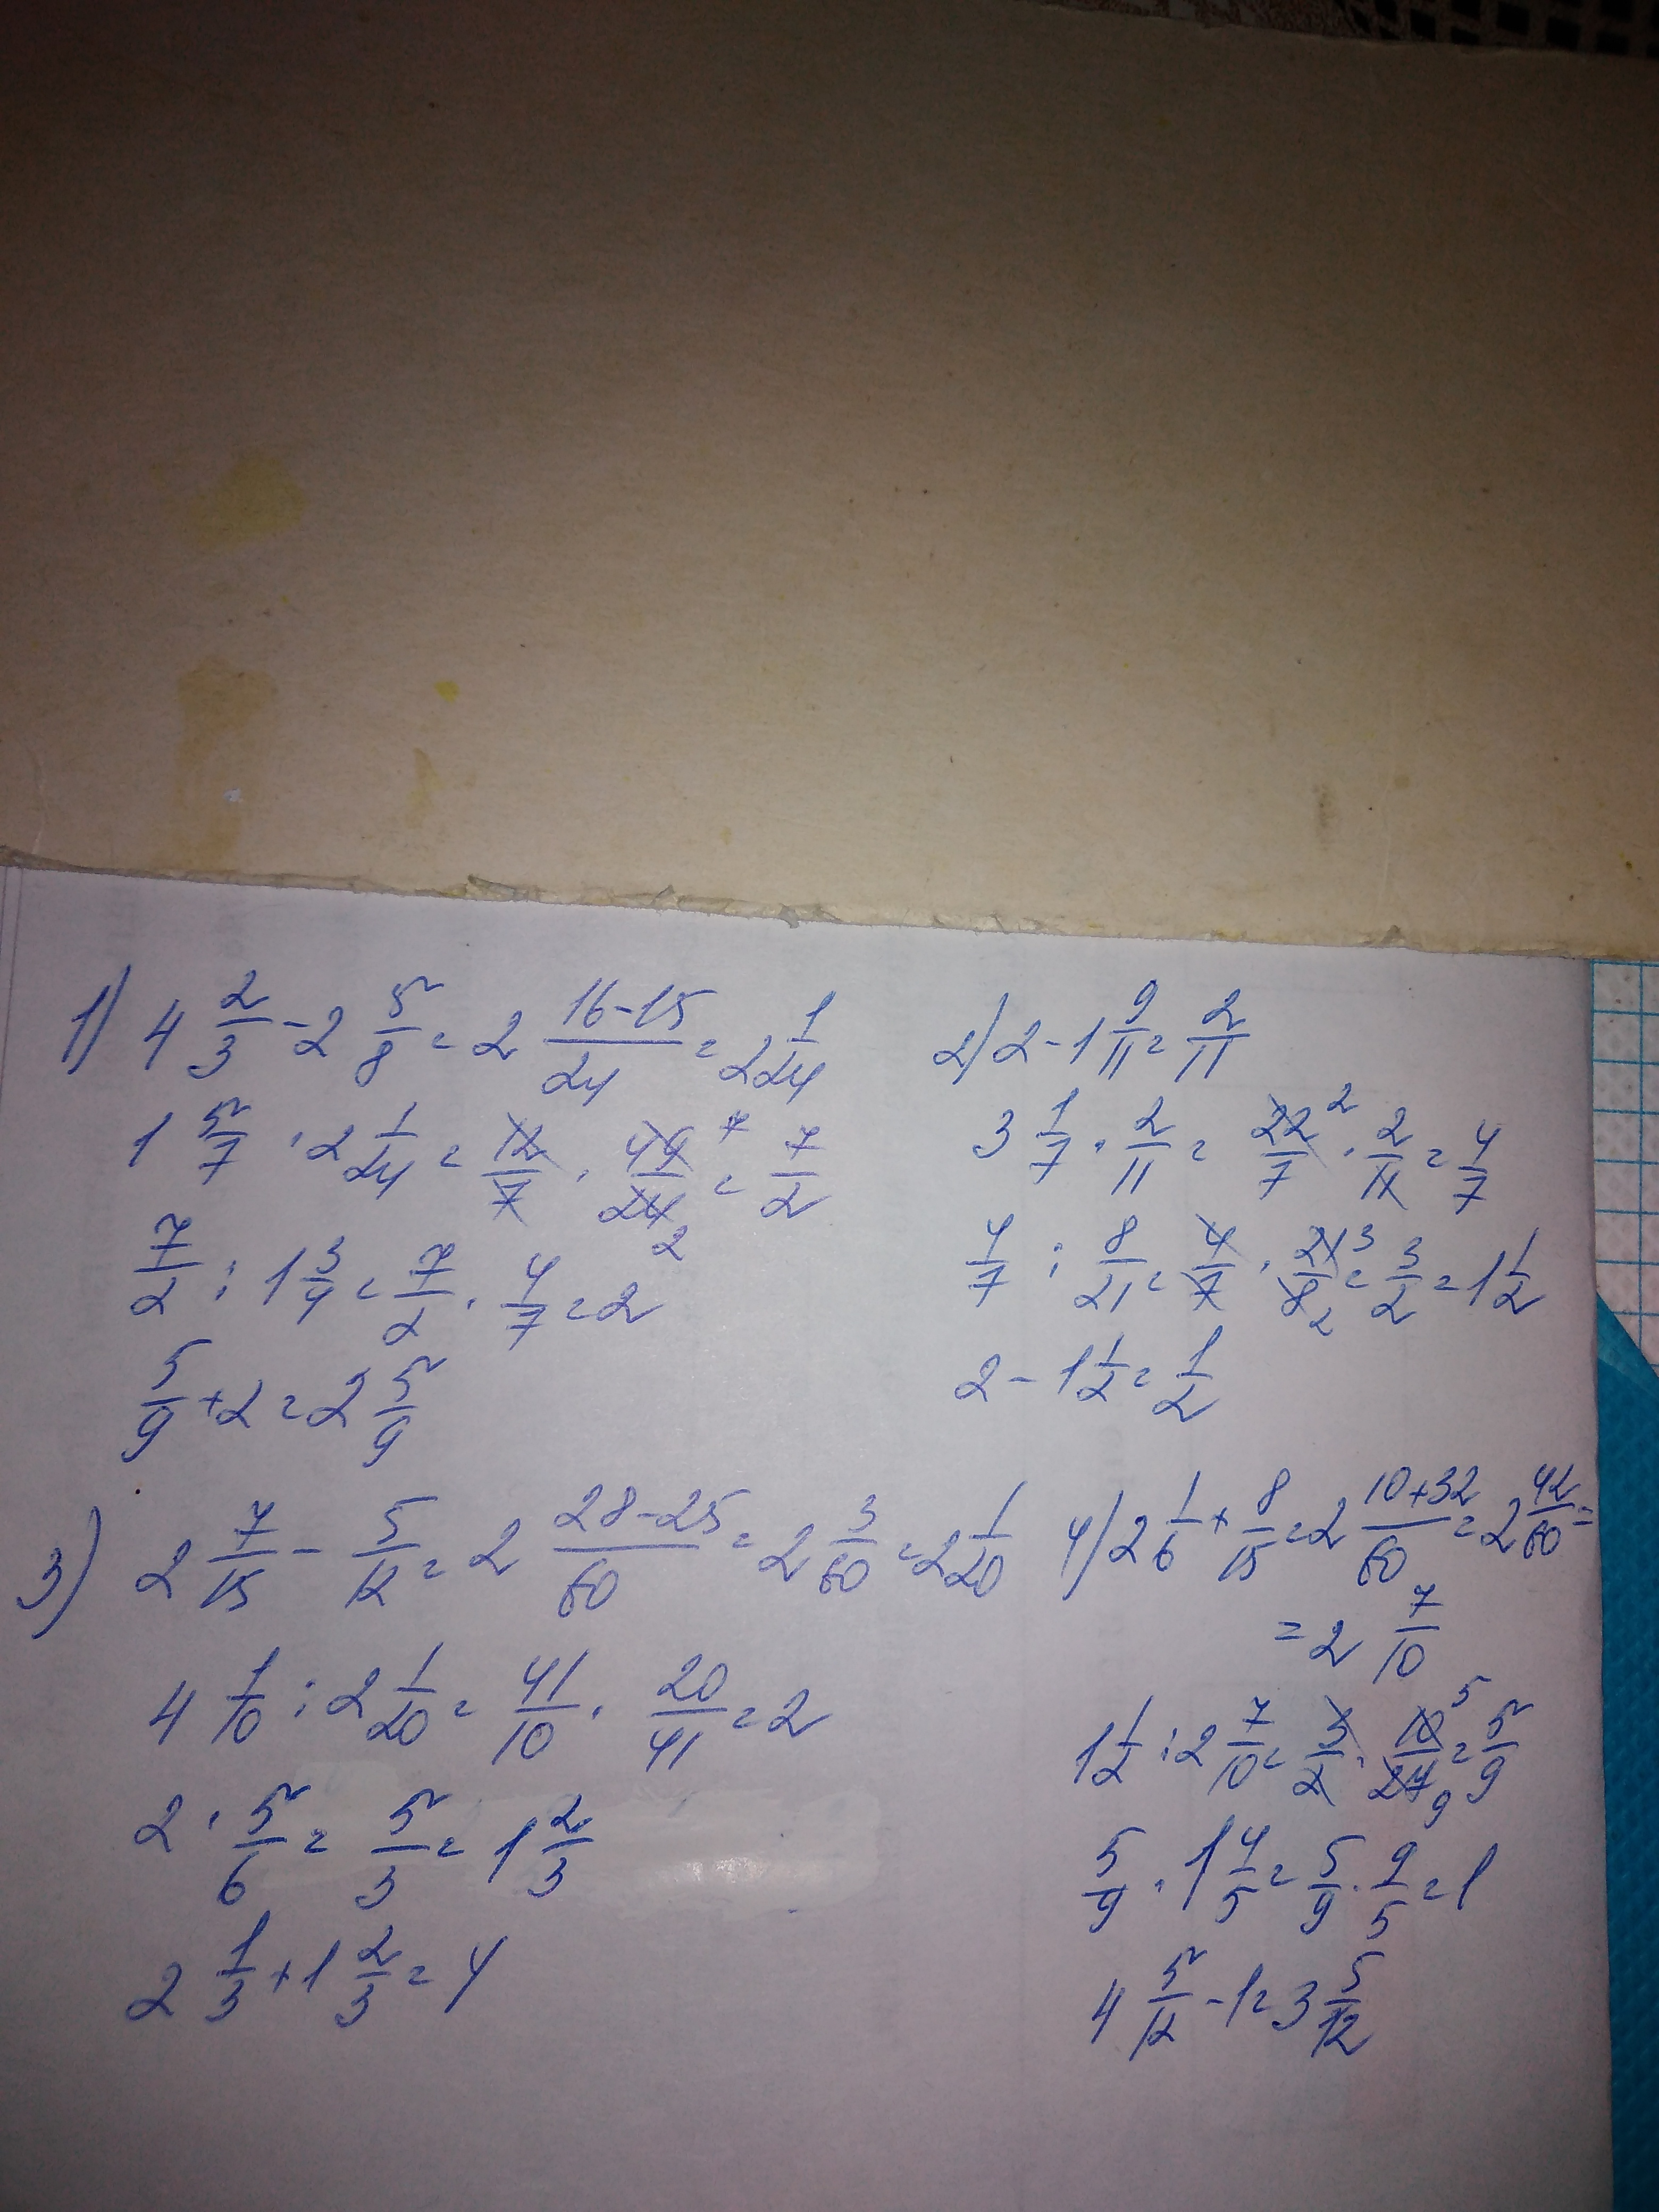 1) 4 2/3 - 2 5/8 = 2 (16-15)/24 = 2 1/24
1 5/7 · 2 1/24 = 12/7 · 49/24 = 7/2
7
2
7/2 : 1 3/4 = 7/2 · 4/7 = 2
5/9 + 2 = 2 5/9
2) 2 - 1 9/11 = 2/11
3 1/7 · 2/11 = 22/7 · 2/11 = 4/7
2
4/7 : 8/21 = 4/7 · 21/8 = 3/2 = 1 1/2
3
2
2 - 1 1/2 = 1/2
3) 2 7/15 - 5/12 = 2 (28-25)/60 = 2 3/60 = 2 1/20
4 1/10 : 2 1/20 = 41/10 · 20/41 = 2
2 · 5/6 = 5/3 = 1 2/3
2 1/3 + 1 2/3 = 4
4) 2 1/6 + 8/15 = 2 (10+32)/60 = 2 42/60 =
= 2 7/10
1 1/2 : 2 7/10 = 3/2 · 10/27 = 5/9
5
9
5/9 · 1 4/5 = 5/9 · 9/5 = 1
4 5/12 - 1 = 3 5/12